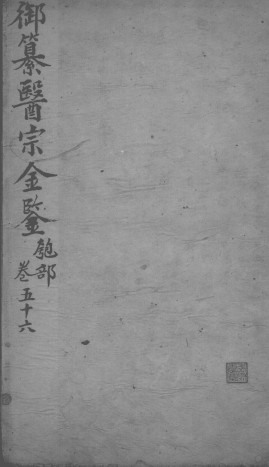 御纂醫宗金鑒
匏部
卷五十六